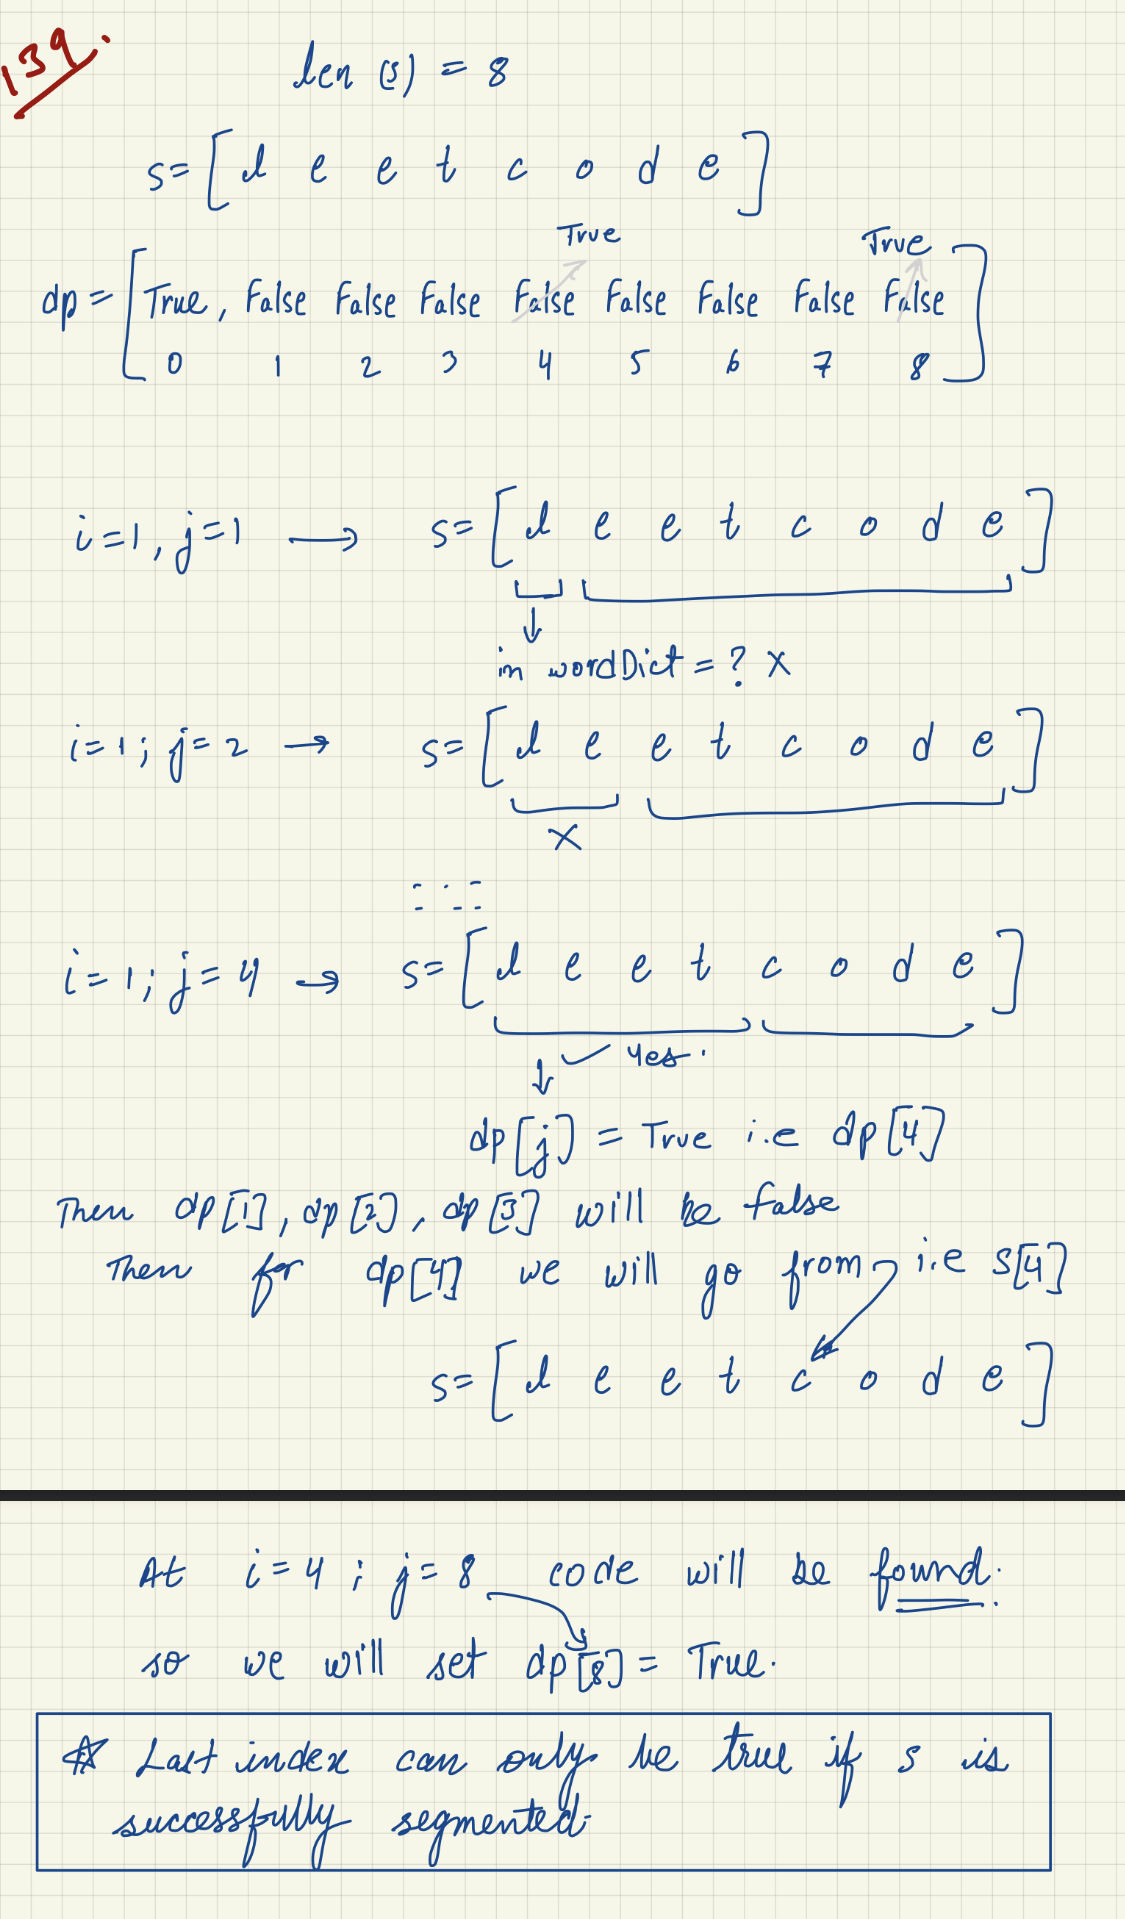 139.
len (s) = 8
s= [ l e e t c o d e ]
True True
dp = [ True, False False False False False False False False ]
0 1 2 3 4 5 6 7 8
i=1, j=1 → s= [ l e e t c o d e ]
↓
in wordDict = ? X
i=1; j=2 → s= [ l e e t c o d e ]
X
i=1; j=4 → s= [ l e e t c o d e ]
↓ ✓ Yes.
dp[j] = True i.e dp[4]
Then dp[1], dp[2], dp[3] will be false
Then for dp[4] we will go from i.e s[4]
s= [ l e e t c o d e ]
At i=4 ; j=8 code will be found.
so we will set dp[8] = True.
☆ Last index can only be true if s is
successfully segmented.